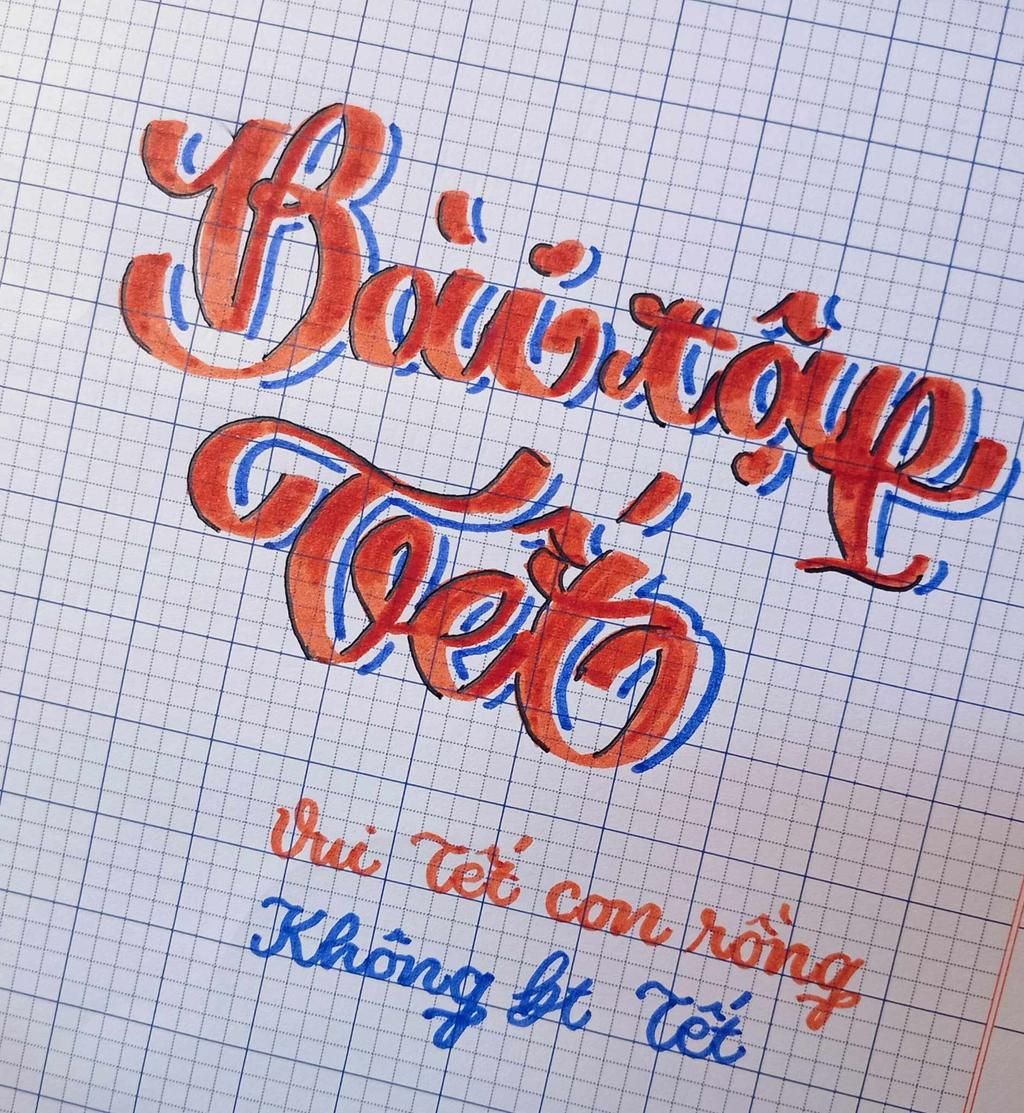 Bài tập
Tết
Vui Tết con rồng
Không bt Tết